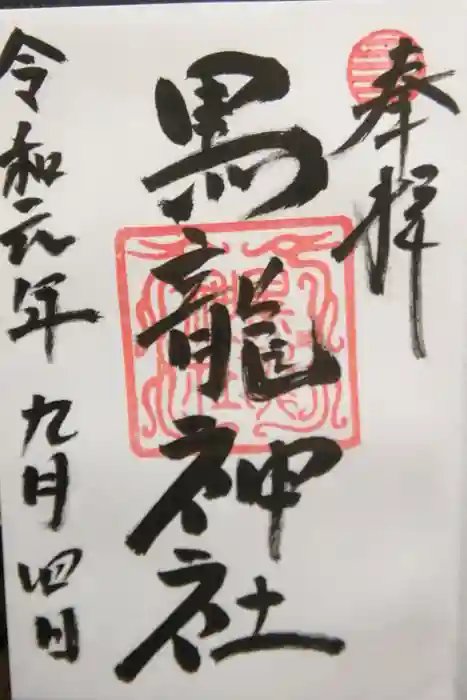 奉拝
黒龍神社
令和元年 九月 四日